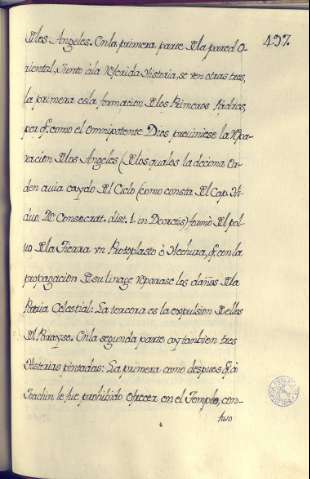 437.
Delos Angeles. En la primera parte Dela pared O-
riental, junto àla referida Historia, se ven otras tres,
la primera es la formacion Delos Primeros Padres,
por q̃ como el omnipotente Dios previniese la repa-
racion Delos Angeles (Delos quales la decima or-
den avia caydo Del Cielo (como consta Del Cap.
Consecrat. dist. 1. in formó Del pol-
vo Dela Tierra vn Protoplasto ò Hechura, q̃ con la
propagacion De su linage reparase los daños Dela
Patria Celestial: La tercera es la expulsion De ellos
Del Parayso. En la segunda parte ay tambien tres
Historias pintadas: La primera como despues q̃ à
Joachin le fue prohibido ofrecer en el Templo, con-